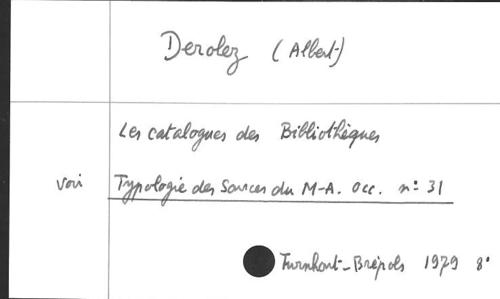 Derolez (Albert)
Les catalogues des Bibliothèques
voir Typologie des Sources du M-A. Occ. n: 31
Turnhout-Brépols 1979 8°